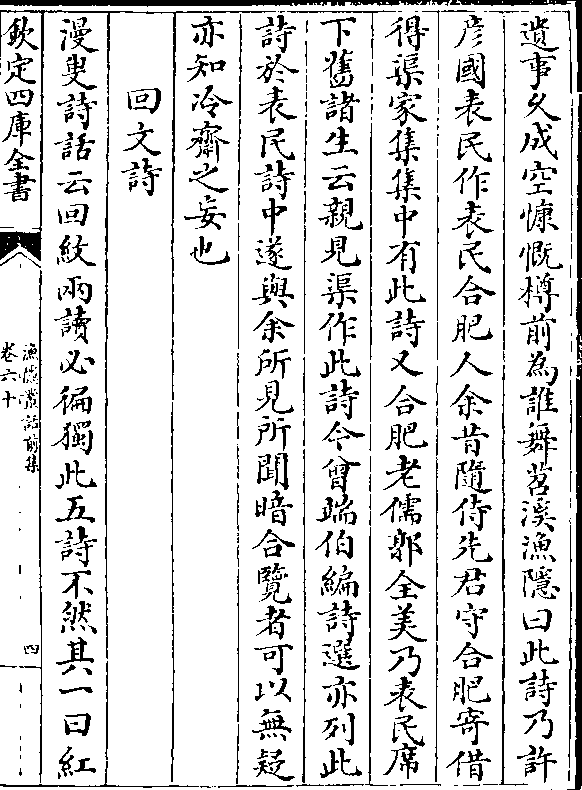 遺事久成空慷慨樽前為誰舞苕溪漁隱曰此詩乃許
彦國表民作表民合肥人余昔隨侍先君守合肥寄借
得渠家集集中有此詩又合肥老儒郭全美乃表民席
下舊諸生云親見渠作此詩今曾端伯編詩選亦列此
詩於表民詩中遂與余所見所聞暗合覽者可以無疑
亦知冷齋之妄也
回文詩
漫叟詩話云回紋兩讀必徧獨此五詩不然其一曰紅
欽定四庫全書
漁隱叢話前集
卷六十
四